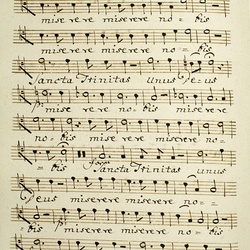 miserere miserere no= bis
miserere miserere no=
Sancta Trinitas unus Deus
mise rere no= bis mise rere
no= bis mise rere miserere no=
= bis Sancta Trinitas unus
Deus miserere miserere no=
= bis miserere miserere no=